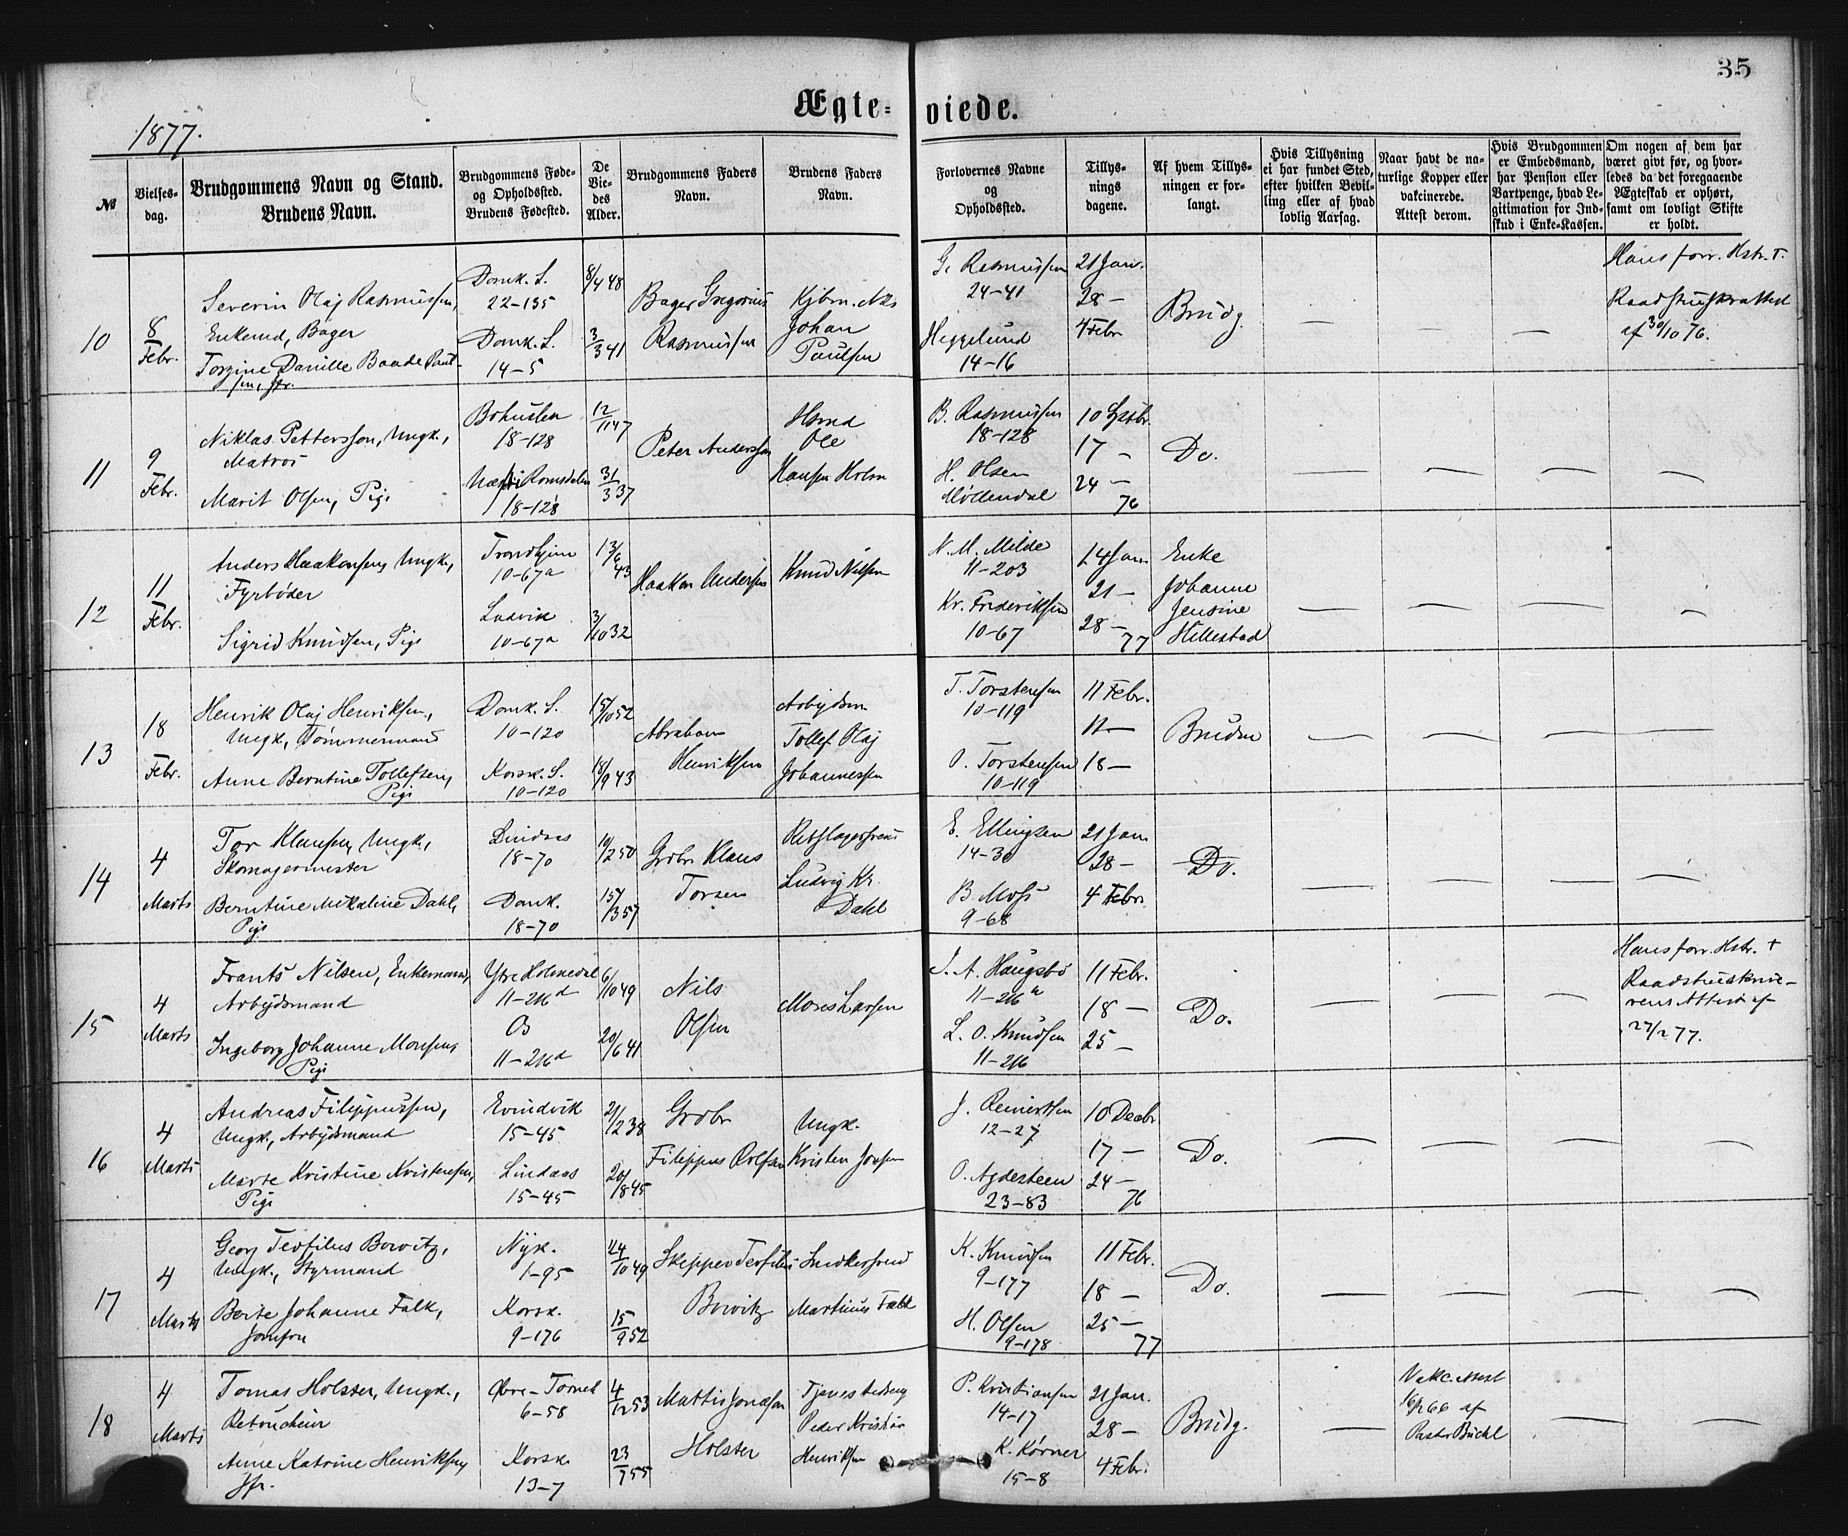 35
Ægte-viede.
1877.
№
Vielses-
dag.
Brudgommens Navn og Stand.
Brudens Navn.
Brudgommens Føde-
og Opholdssted.
Brudens Fødested.
De
Vie-
des
Alder.
Brudgommens Faders
Navn.
Brudens Faders
Navn.
Forlovernes Navne
og
Opholdssted.
Tillys-
nings
dagene.
Af hvem Tillys-
ningen er for-
langt.
Hvis Tillysning
ei har fundet Sted,
efter hvilken Bevil-
ling eller af hvad
lovlig Aarsag.
Naar havt de na-
turlige Kopper eller
vakcinerede.
Attest derom.
Hvis Brudgommen
er Embedsmand,
har Pension eller
Vartpenge, hvad Le-
gitimation for Ind-
skud i Enke-Kassen.
Om nogen af dem har
været givt før, og hvor-
ledes da det foregaaende
Ægteskab er ophørt,
samt om lovligt Skifte
er holdt.
10
8
Febr.
Severin Olaj Rasmussen,
Enkemd, Bager
Torgine Danille Baade Paul-
sen, Jfr.
Domk. S.
22-135
Domk. S.
14-5
8/4 48
3/3 41
Bager Gregorius
Rasmussen
Kjbm. Nils
Johan
Paulsen
G. Rasmussen
24-41
Heggelund
14-16
21 Jan.
28 —
4 Febr
Brudg.
Hans forr. Hstr. +
af 30/10 76.
11
9
Febr.
Niklas Pettersson, Ungk.,
Matros
Marit Olsen, Pige
Bohuslen
18-128
Romsdalen
18-128
12/11 47
31/3 37
Peter Andersson
Hsmd
Ole
Hansen Holm
B. Rasmussen
18-128
H. Olsen
Møllendal
10 Septbr.
17 —
24 —
76
Do.
12
11
Febr.
Anders Haakensen, Ungk.,
Fyrbøder
Sigrid Knudsen, Pige
Trondhjem
10-67a
Ladvik
10-67a
13/6 43
3/10 32
Haakon Andersen
Knud Nilsen
N. M. Milde
11-203
Kr. Frideriksen
10-67
14 Jan.
21 —
28 —
77
Enke
Johanne
Jensine
Hillestad
13
18
Febr.
Henrik Olaj Henriksen,
Ungk., Tømmermand
Anne Berntine Tollefsen,
Pige
Domk. S.
10-120
Korsk. S.
10-120
15/10 52
18/9 43
Abraham
Henriksen
Arbejdsm
Tollef Olaj
Johannessen
T. Torstensen
10-119
O. Torstensen
10-119
11 Febr.
11 —
18 —
Bruden
14
4
Marts
Tor Klausen, Ungk.,
Skomagermester
Berntine Mikaline Dahl,
Pige
Lindaas
18-70
Domk.
18-70
10/2 50
15/3 57
Grdbr Klaus
Torsen
Rebslagersvend
Ludvig Kr.
Dahl
E. Ellingsen
14-30
B. Moss
9-68
21 Jan
28 —
4 Febr.
Do.
15
4
Marts
Frants Nilsen, Enkemand,
Arbejdsmand
Ingeborg Johanne Monsen,
Pige
Ytre Holmedal
11-216d
Os
11-216d
6/10 49
20/6 41
Nils
Olsen
Mons Larsen
J. A. Haugsbø
11-216a
L. O. Knudsen
11-216
11 Febr.
18 —
25 —
Do.
Hans forr. Hstr. +
Raadstueskrive-
rens Attest af
27/2 77.
16
4
Marts
Andreas Filippussen,
Ungk., Arbejdsmand
Marte Kristine Kristensen,
Pige
Evindvik
15-45
Lindaas
15-45
21/2 38
20/8 45
Grdbr
Filippus Rolfsen
Ungk.
Kristen Jonsen
J. Reinertsen
12-27
O. Agdesteen
23-83
10 Decbr
17 —
24 —
76
Do.
17
4
Marts
Georg Teofilus Bowitz,
Ungk., Styrmand
Berte Johanne Falk,
Jomfru
Nyk.
1-95
Korsk.
9-176
24/10 49
15/9 52
Skipper Teofilus
Bowitz
Snedkersvend
Martinus Falk
K. Knudsen
9-177
H. Olsen
9-178
11 Febr.
18 —
25 —
77
Do.
18
4
Marts
Tomas Holster, Ungk.,
Retoucheur
Anne Katrine Henriksen,
Jfr.
Øvre-Torned
6-58
Korsk
13-7
4/12 53
23/7 55
Mattis Jonassen
Holster
Peder Kristian
Henriksen
P. Kristiansen
14-17
K. Kørner
15-8
21 Jan.
28 —
4 Febr.
Brudg.
Vakc. attest
af
Pastor Buchl